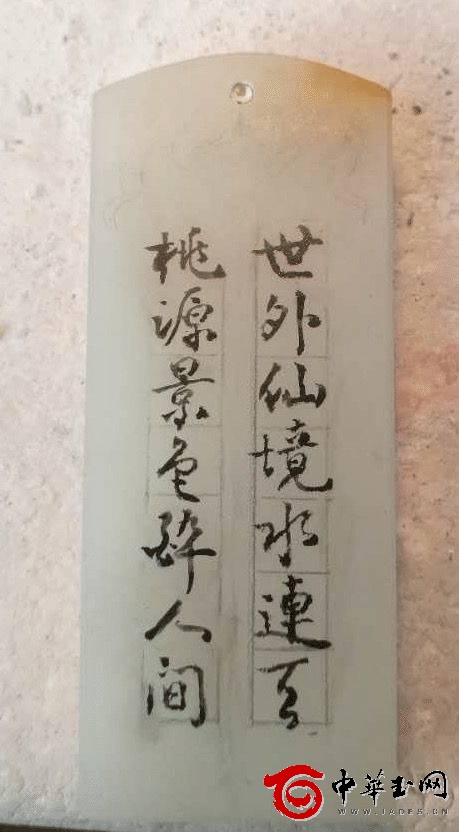 世外仙境水連天
桃源景色醉人间
中華玉网